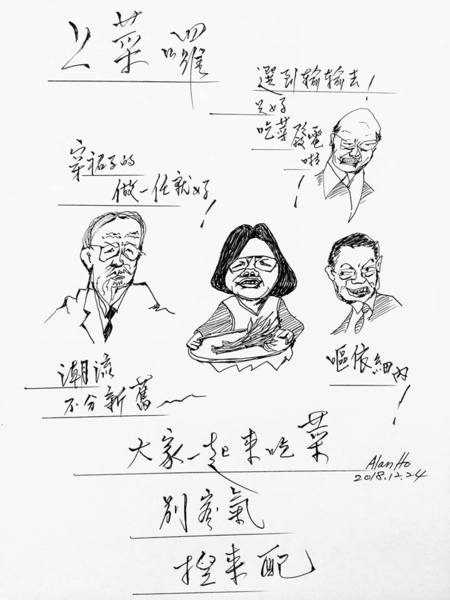 上菜囉
選到輸輸去！
只好
吃菜發電
啦！
穿裙子的
做一任就好！
潮流
不分新舊
嘔依細
大家一起來吃菜
Alan Ho
2018.12.24
別客氣
來配